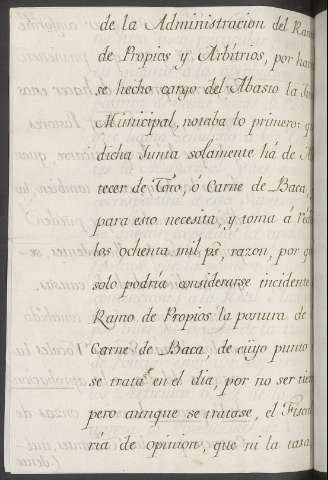 de la Administracion del Ram
de Propios y Arbitrios, por hav
se hecho cargo del Abasto la Jun
Municipal, notaba lo primero: q
dicha Junta solamente há de A
tecer de Toro, ó Carne de Baca,
para esto necesita, y toma á Red
los ochenta mil p.s, razon, por q
solo podría considerarse incidente
Ramo de Propios la postura de
Carne de Baca, de cüyo punto
se trata en el dia, por no ser tiem
pero aunque se tratase, el Fiscal
ría de opinion, que ni la tasa